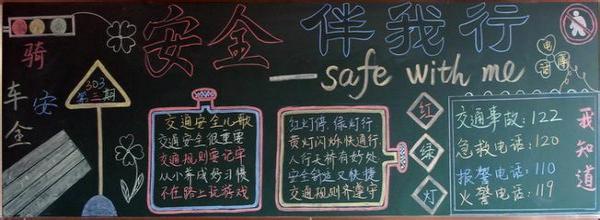 安全伴我行
—safe with me
骑车安全
303
第二期
交通安全儿歌
交通安全很重要
交通规则要记牢
从小养成好习惯
不在路上玩游戏
红灯停,绿灯行
黄灯闪烁快通行
人行天桥有好处
安全舒适又快捷
交通规则齐遵守
红
绿
灯
电话
交通事故:122
急救电话:120
报警电话:110
火警电话:119
我知道